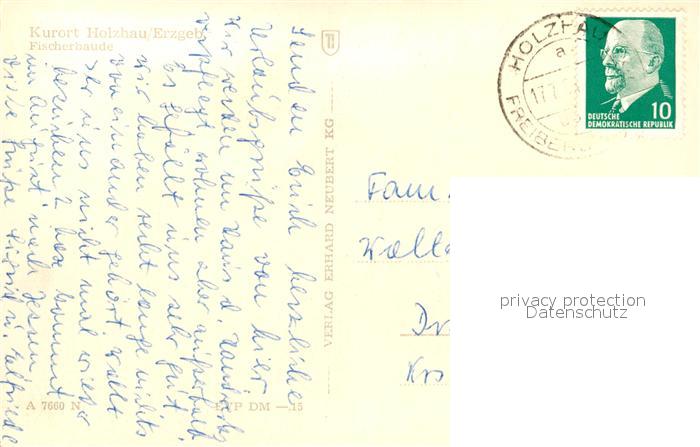 Kurort Holzhau/Erzgeb.
Fischerbaude
Senden Euch herzliche
Urlaubsgrüße von hier
Wir werden im Haus d.
verpflegt wohnen aber außerhalb.
Es gefällt uns sehr gut.
Wir haben recht lange nichts
voneinander gehört. Wollt
Ihr uns nicht mal wieder
besuchen?
im August nach Jessen
VERLAG ERHARD NEUBERT KG
A 7660 N
EVP DM —.15
HOLZHAU
a
FREIBERG
DEUTSCHE
DEMOKRATISCHE REPUBLIK
10
Fam.
Krs
privacy protection
Datenschutz